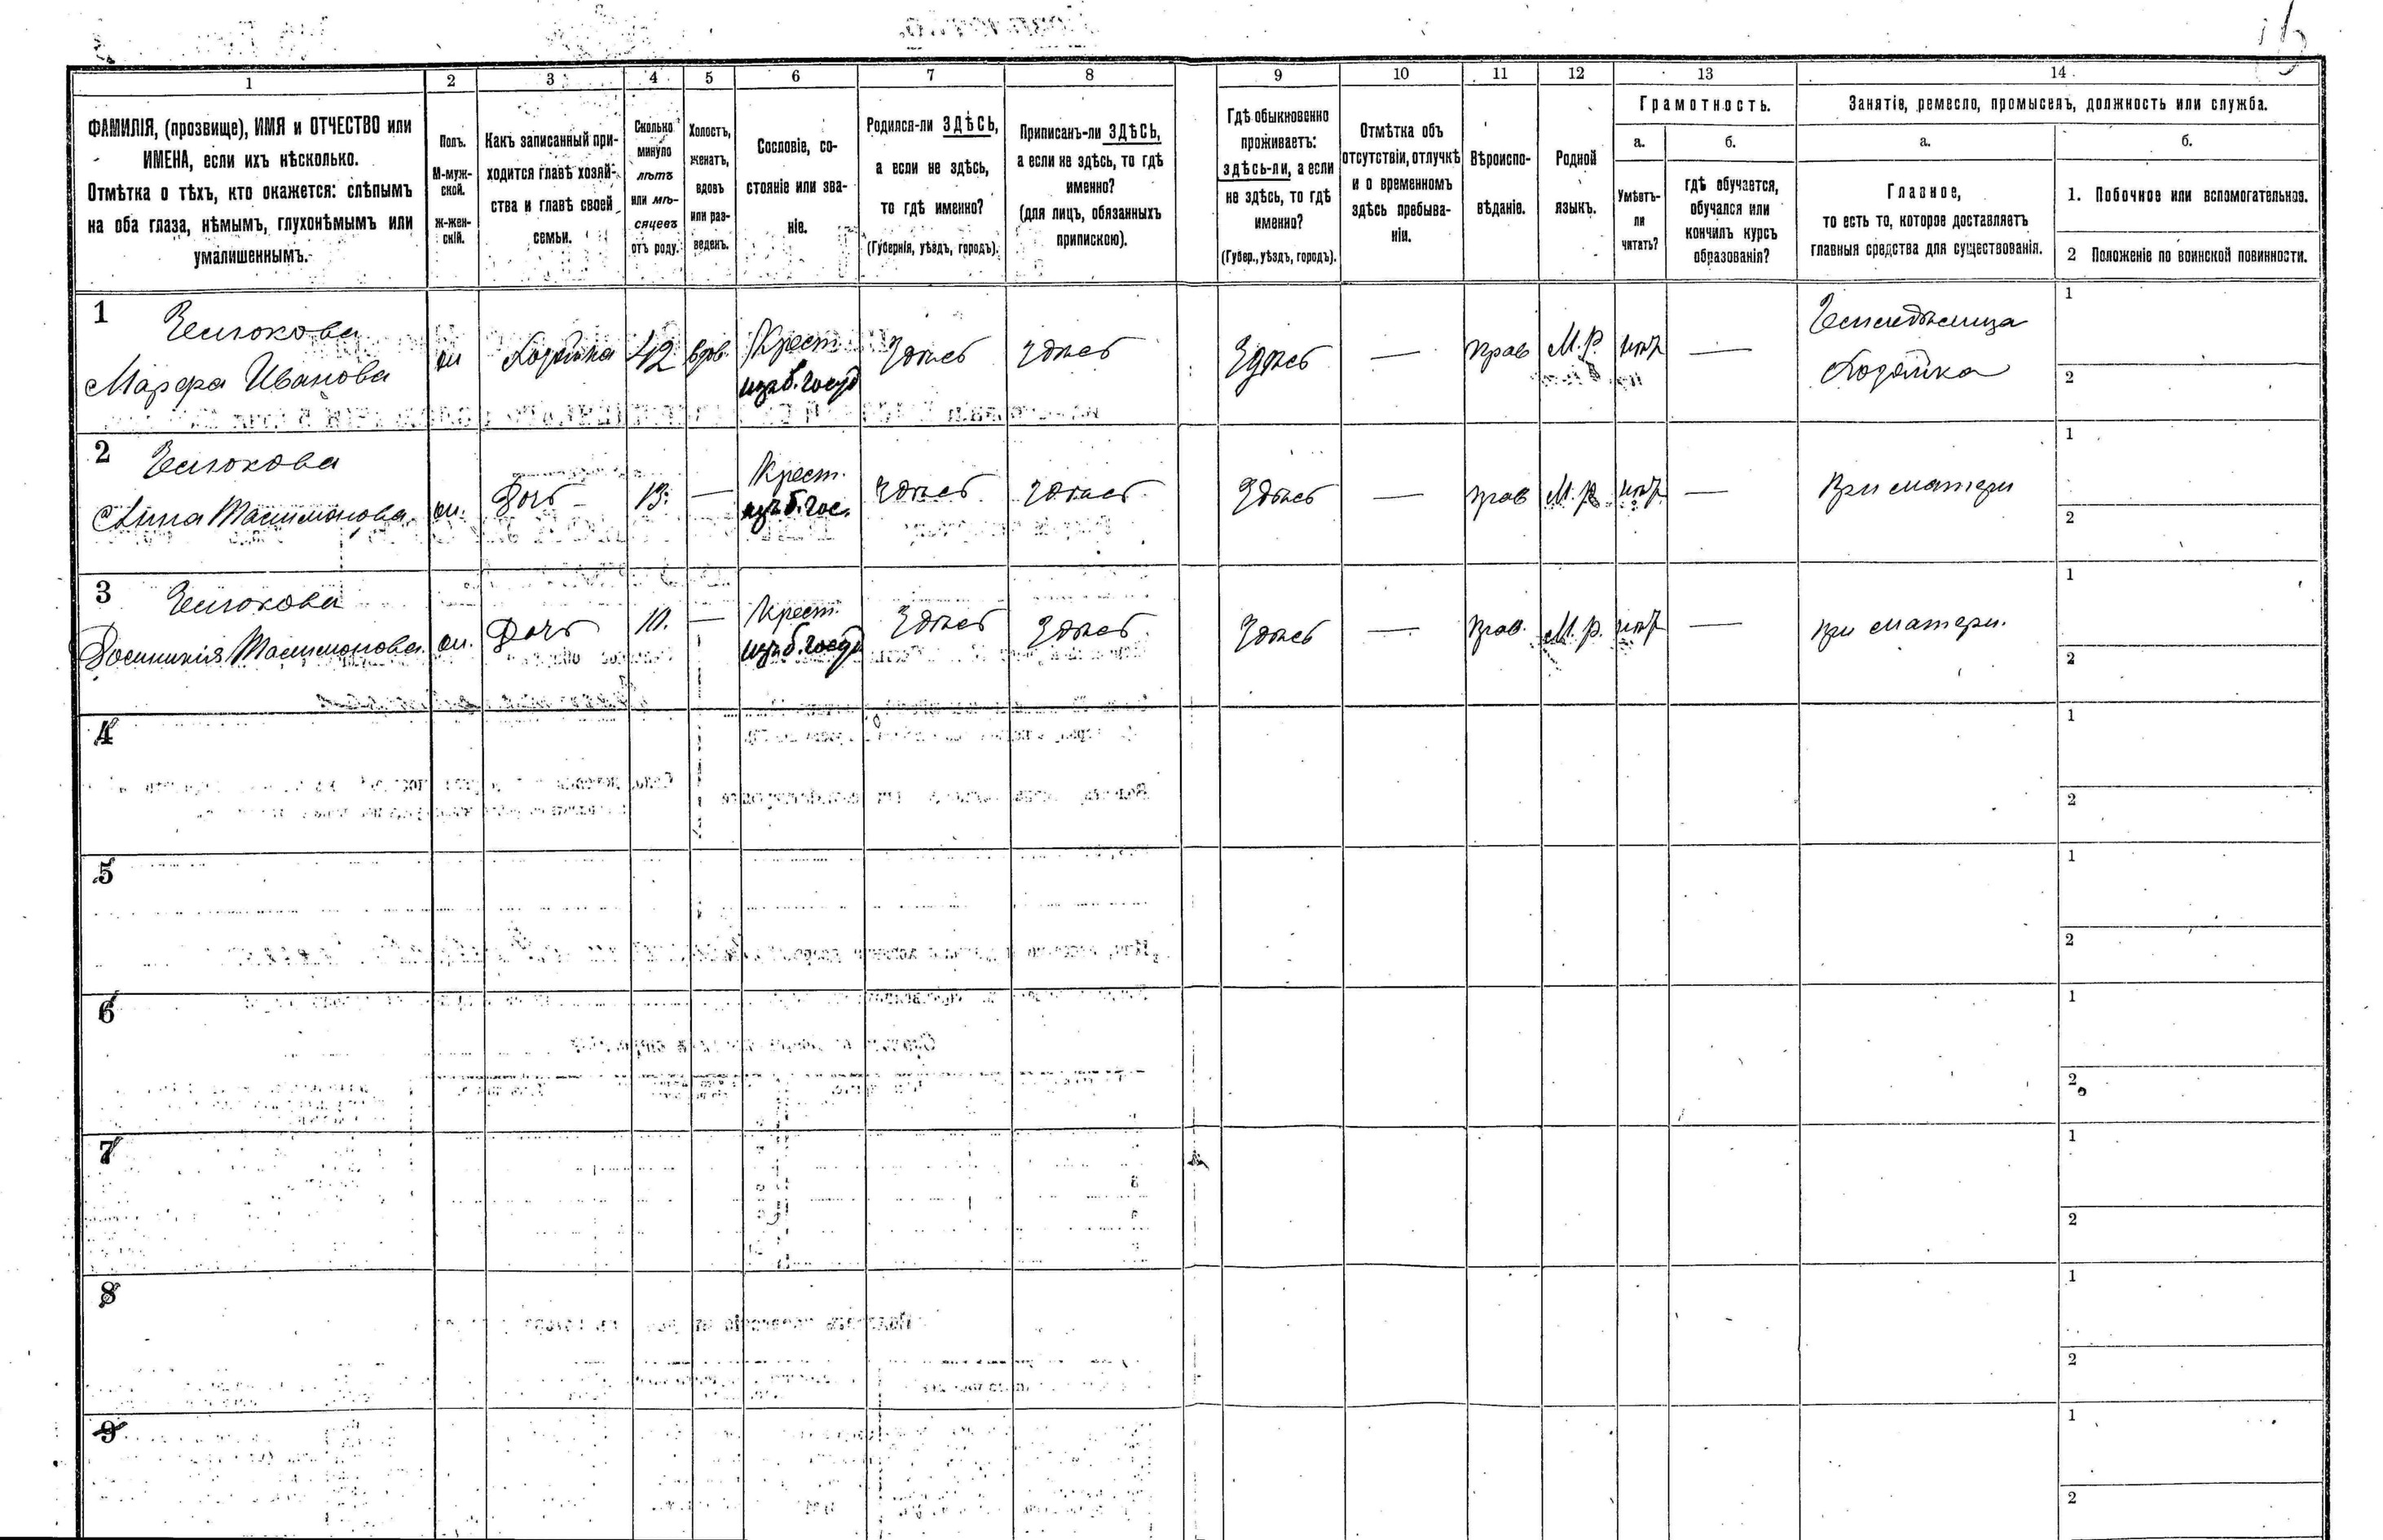 1 2 3 4 5 6 7 8 9 10 11 12 13 14
ФАМИЛІЯ, (прозвище), ИМЯ и ОТЧЕСТВО или
ИМЕНА, если ихъ нѣсколько.
Отмѣтка о тѣхъ, кто окажется: слѣпымъ
на оба глаза, нѣмымъ, глухонѣмымъ или
умалишеннымъ.
Полъ.
М-муж-
ской.
ж-жен-
скій.
Какъ записанный при-
ходится главѣ хозяй-
ства и главѣ своей
семьи.
Сколько
минуло
лѣтъ
или мѣ-
сяцевъ
отъ роду.
Холостъ,
женатъ,
вдовъ
или раз-
веденъ.
Сословіе, со-
стояніе или зва-
ніе.
Родился-ли ЗДѢСЬ,
а если не здѣсь,
то гдѣ именно?
(Губернія, уѣздъ, городъ).
Приписанъ-ли ЗДѢСЬ,
а если не здѣсь, то гдѣ
именно?
(для лицъ, обязанныхъ
припискою).
Гдѣ обыкновенно
проживаетъ:
здѣсь-ли, а если
не здѣсь, то гдѣ
именно?
(Губер., уѣздъ, городъ).
Отмѣтка объ
отсутствіи, отлучкѣ
и о временномъ
здѣсь пребыва-
ніи.
Вѣроиспо-
вѣданіе.
Родной
языкъ.
Грамотность.
а.
Умѣетъ-
ли
читать?
б.
гдѣ обучается,
обучался или
кончилъ курсъ
образованія?
Занятіе, ремесло, промыселъ, должность или служба.
а.
Главное,
то есть то, которое доставляетъ
главныя средства для существованія.
б.
1. Побочное или вспомогательное.
2 Положеніе по воинской повинности.
1
Марфа Иванова
Хозяйка 42 вдв. Крест.
изъ б. госуд
Здѣсь Здѣсь Здѣсь — Прав М.Р. нѣт —
Хозяйка
1
2
2
Анна
Дочь 13. — Крест.
изъ б. гос.
Здѣсь Здѣсь Здѣсь — прав М.Р. нѣт —
При матери
1
2
3
Дочь — Крест.
изъ б. госуд
Здѣсь Здѣсь Здѣсь — Прав. М.Р. нѣт —
при матери.
1
2
4
1
2
5
1
2
6
1
2
7
1
2
8
1
2
9
1
2